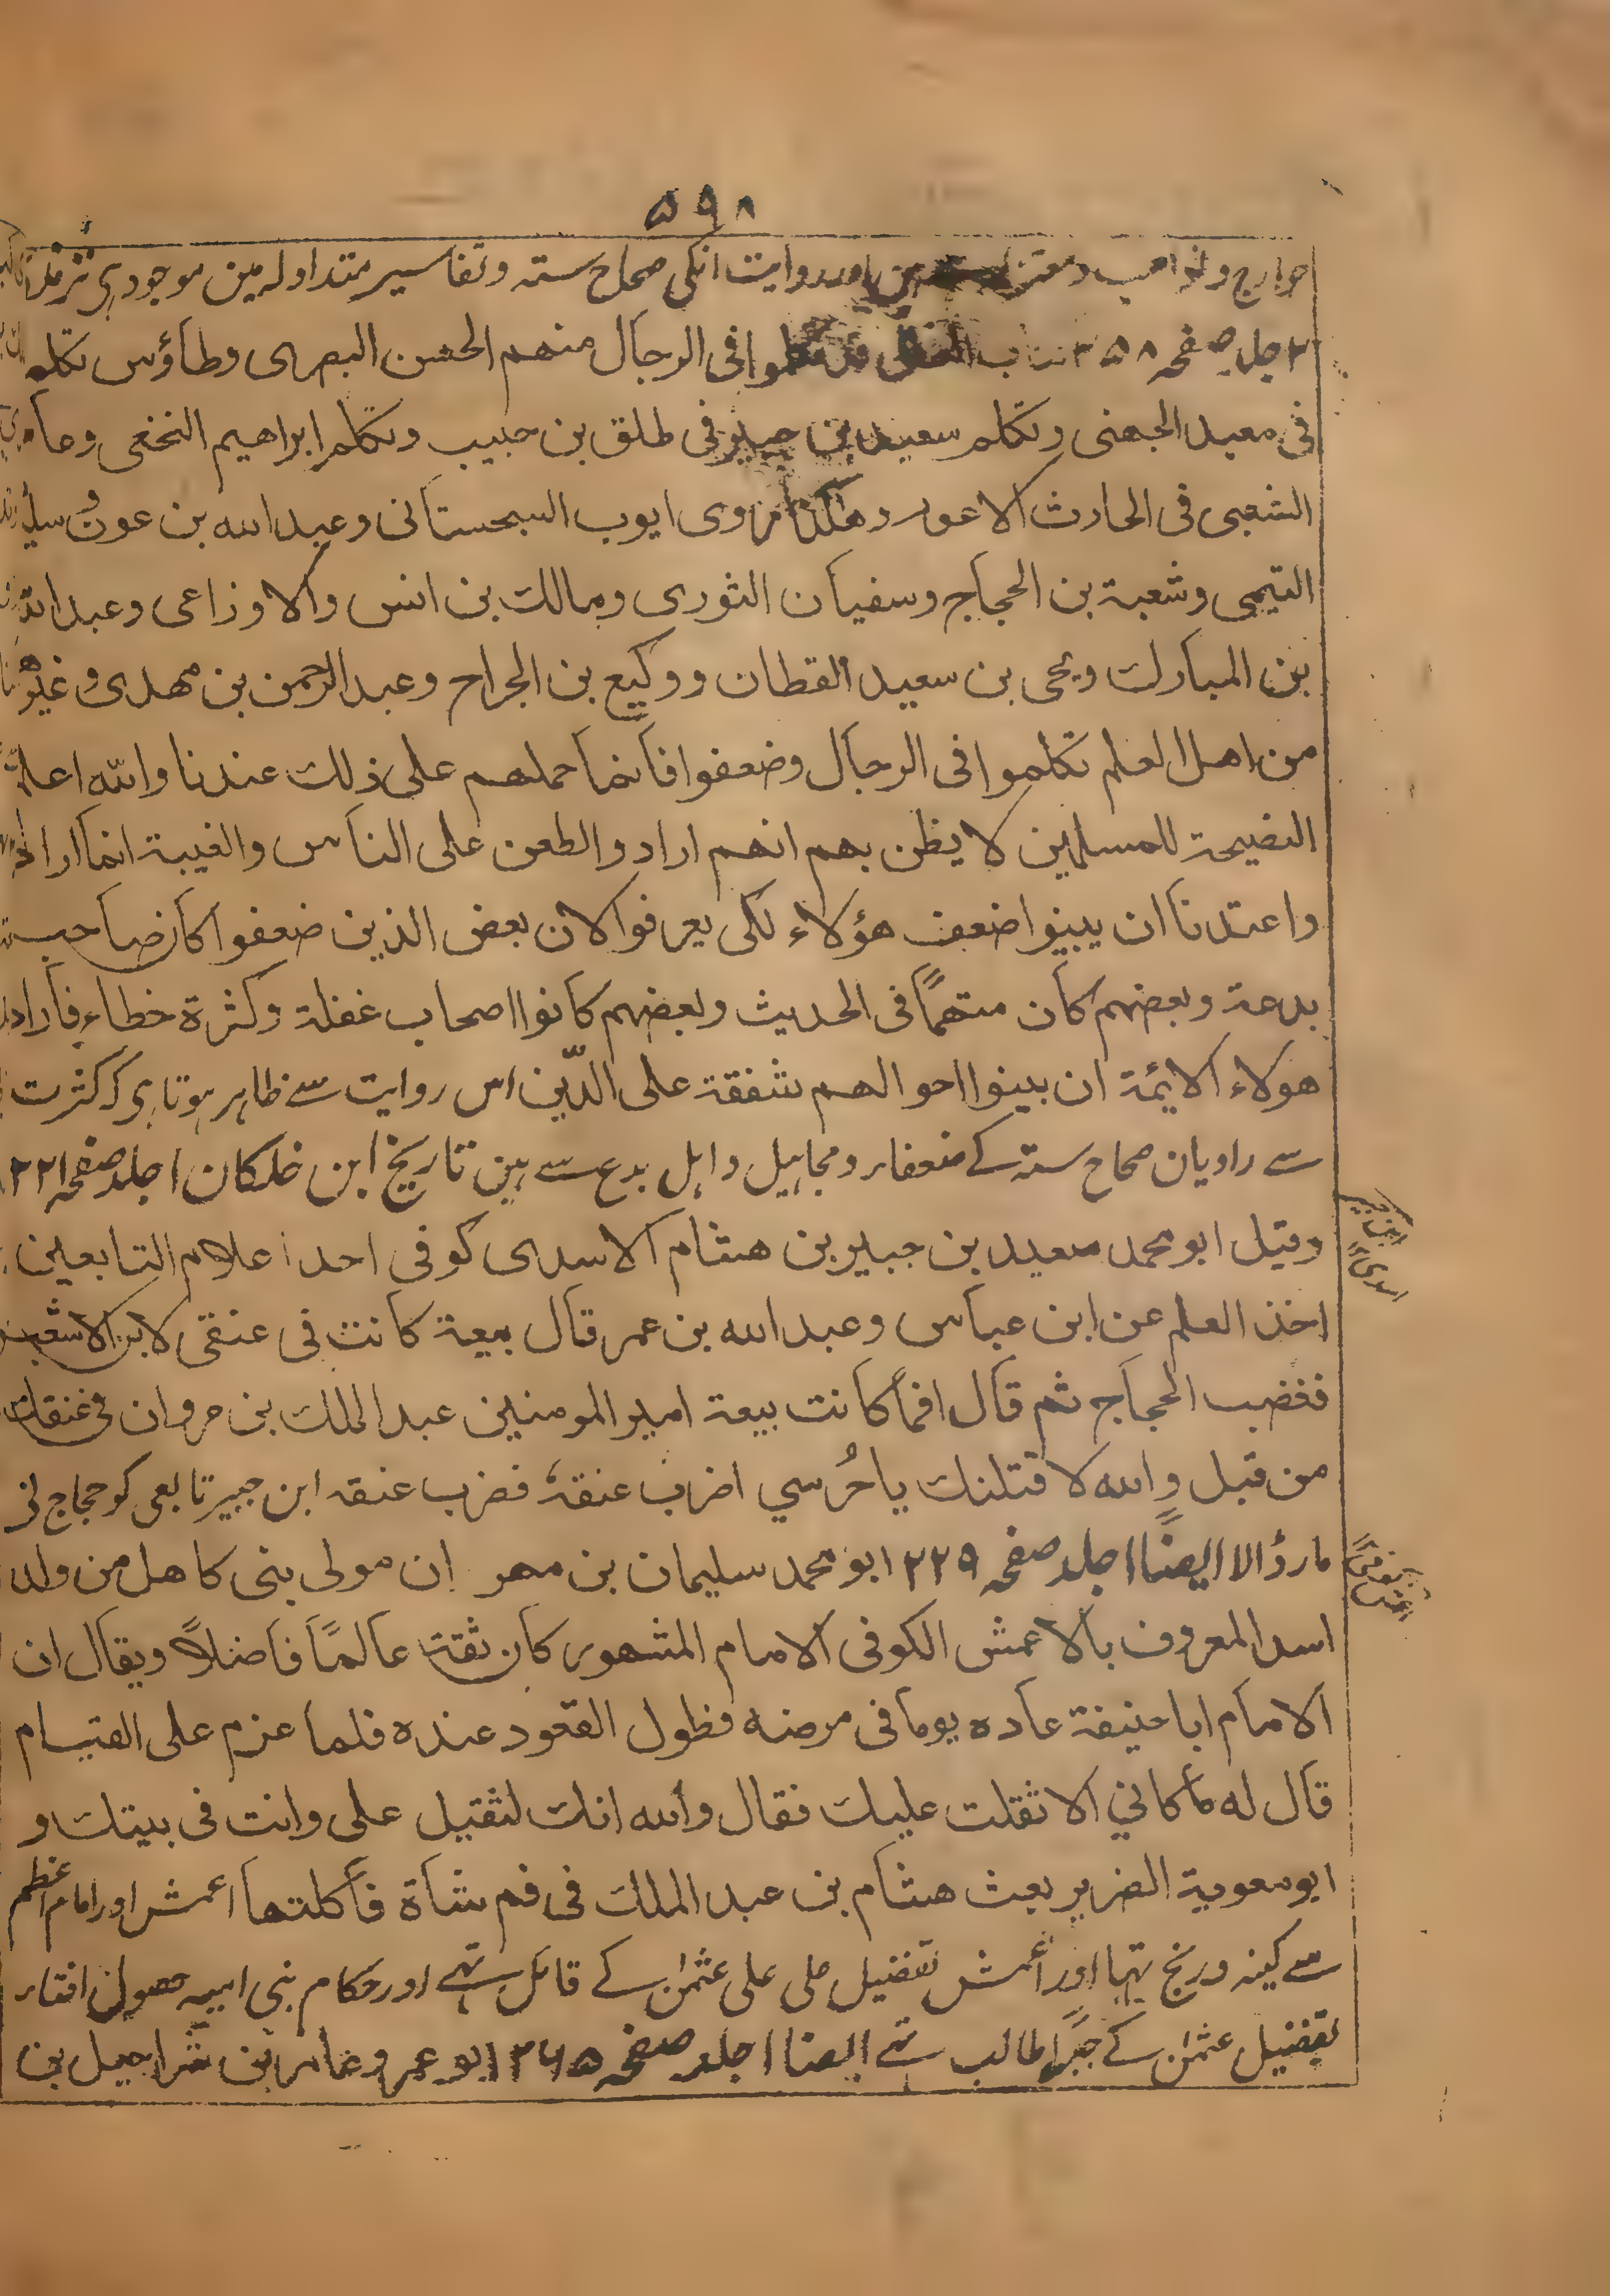 ۵۹۸
خوارج ونواصب ومعتزله ہین اور روایت انکی صحاح ستہ وتفاسیر متداولہ مین موجود ہی ترمذی
۲ جلد صفحہ ۲۵۸ کتاب العلل قد تکلموا فی الرجال منهم الحسن البصری وطاؤس تکلم
فی معبد الجهنی وتکلم سعید بن جبیر فی طلق بن حبیب وتکلم ابراهیم النخعی وعامر
الشعبی فی الحارث الاعور وهکذا روی ایوب السجستانی وعبد الله بن عون وسلیمان
التیمی وشعبة بن الحجاج وسفیان الثوری ومالك بن انس والاوزاعی وعبد الله
بن المبارك ویحی بن سعید القطان ووکیع بن الجراح وعبد الرحمن بن مهدی وغیرهم
من اهل العلم تکلموا فی الرجال وضعفوا فانما حملهم علی ذلك عندنا والله اعلم
النصیحة للمسلمین لا یظن بهم انهم ارادوا الطعن علی الناس والغیبة انما ارادوا
واعتدنا ان یبینوا ضعف هؤلاء لکی یعرفوا لان بعض الذین ضعفوا کان صاحب
بدعة وبعضهم کان متهمًا فی الحدیث وبعضهم کانوا اصحاب غفلة وکثرة خطاء فاراد
هولاء الایمة ان بینوا احوالهم شفقة علی الدّین اس روایت سے ظاہر ہوتا ہی کہ کثرت
سے راویان صحاح ستہ کے ضعفاء ومجاہیل واہل بدع سے ہین تاریخ ابن خلکان ۱ جلد صفحہ ۲۲۱
وقیل ابو محمد سعید بن جبیر بن هشام الاسدی کوفی احد اعلام التابعین
اخذ العلم عن ابن عباس وعبد الله بن عمر قال بیعة کانت فی عنقی لابن الاشعث
فغضب الحجاج ثم قال افما کانت بیعة امیر المومنین عبد الملك بن مروان فی عنقك
من قبل والله لاقتلنك یا حُرسي اضرب عنقهٗ فضرب عنقه ابن جبیر تابعی کو حجاج نے
مار ڈالا ایضًا ۱ جلد صفحہ ۲۲۹ ابو محمد سلیمان بن مهران مولی بنی کاهل من ولد
اسد المعروف بالاعمش الکوفی الامام المشهور کان ثقة عالمًا فاضلاً ویقال ان
الامام ابا حنیفة عاده یوما فی مرضه فطول القعود عنده فلما عزم علی القیام
قال له ما کاني الا ثقلت علیك فقال والله انك لثقیل علی وانت فی بیتك و
ابو معویة الضریر بعث هشام بن عبد الملك فی فم شاة فأکلتها اعمش اور امام اعظم
سے کینہ ورنج تہا اور اعمش تفضیل علی علی عثمان کے قائل تہے اور حکام بنی امیہ حصول افتاء
بتفضیل عثمان کے جبرًا طالب تہے ایضًا ۱ جلد صفحہ ۲۶۵ ابو عمرو عامر بن شراحیل بن